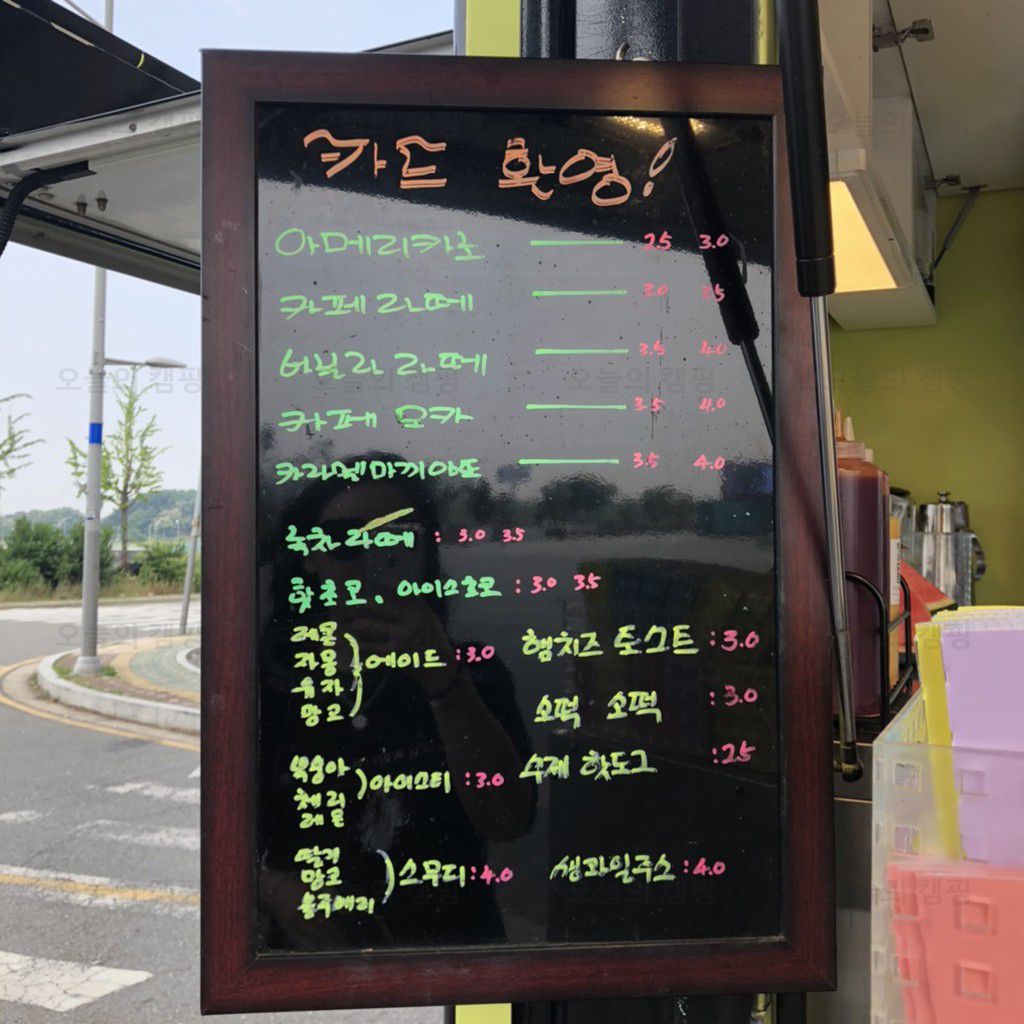 카드 환영!
아메리카노 2.5 3.0
카페 라떼 3.0 3.5
바닐라 라떼 3.5 4.0
카페 모카 3.5 4.0
카라멜마끼아또 3.5 4.0
녹차 라떼 : 3.0 3.5
핫초코. 아이스초코 : 3.0 3.5
레몬
자몽
유자
망고
) 에이드 : 3.0
햄치즈 토스트 : 3.0
소떡 소떡 : 3.0
수제 핫도그 : 2.5
복숭아
체리
레몬
) 아이스티 : 3.0
딸기
망고
블루베리
) 스무디 : 4.0
생과일주스 : 4.0
오늘의 캠핑